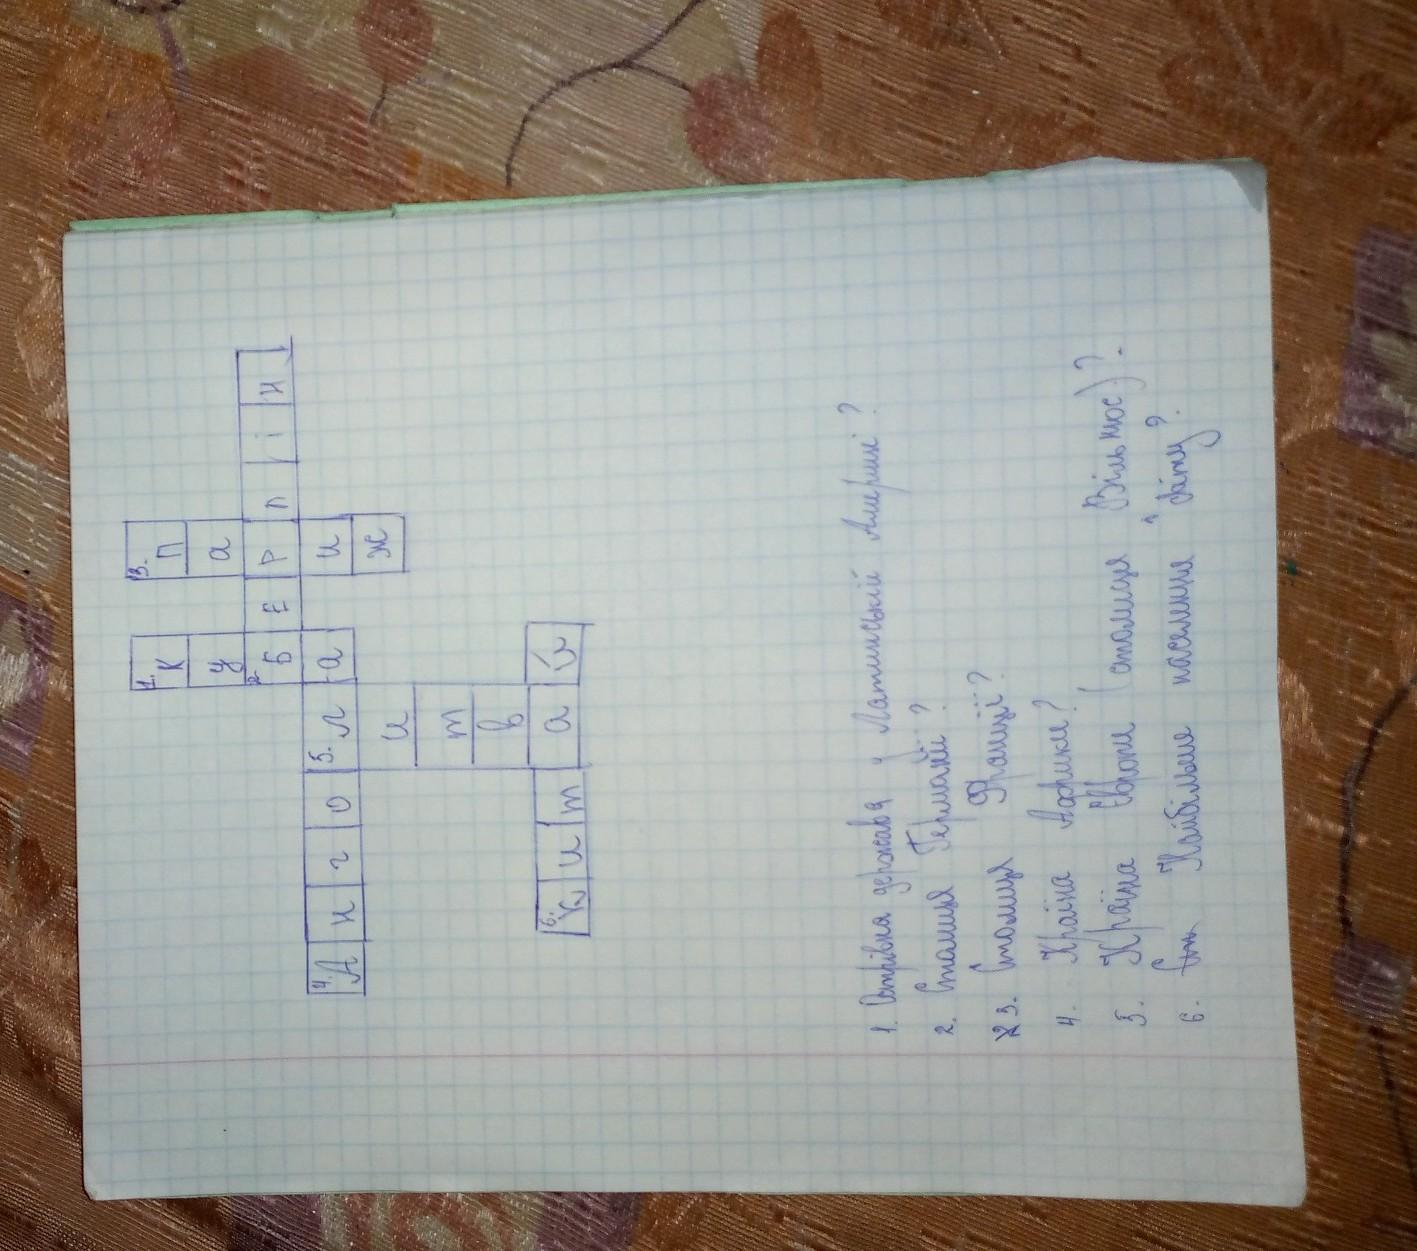 1. К
у
2. Б Е Р Л і н
а
3. П
а
и
ж
4. А н г о л а
5. Л
и
т
в
а
6. К и т а й
1. Острівна держава у Латинській Америці?
2. Столиця Германії?
3. Столиця Франції?
4. Країна Африки?
5. Країна Європи (столиця Вільнюс)?
6. Найбільше населення світу?